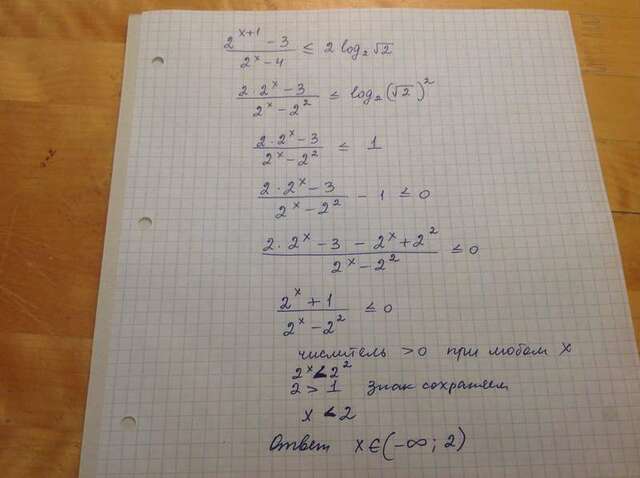 (2^(x+1) - 3)/(2^x - 4) ≤ 2 log₂ √2
(2 · 2^x - 3)/(2^x - 2²) ≤ log₂ (√2)²
(2 · 2^x - 3)/(2^x - 2²) ≤ 1
(2 · 2^x - 3)/(2^x - 2²) - 1 ≤ 0
(2 · 2^x - 3 - 2^x + 2²)/(2^x - 2²) ≤ 0
(2^x + 1)/(2^x - 2²) ≤ 0
числитель > 0 при любом x
2^x < 2²
2 > 1 знак сохраняем
x < 2
Ответ x ∈ (-∞; 2)